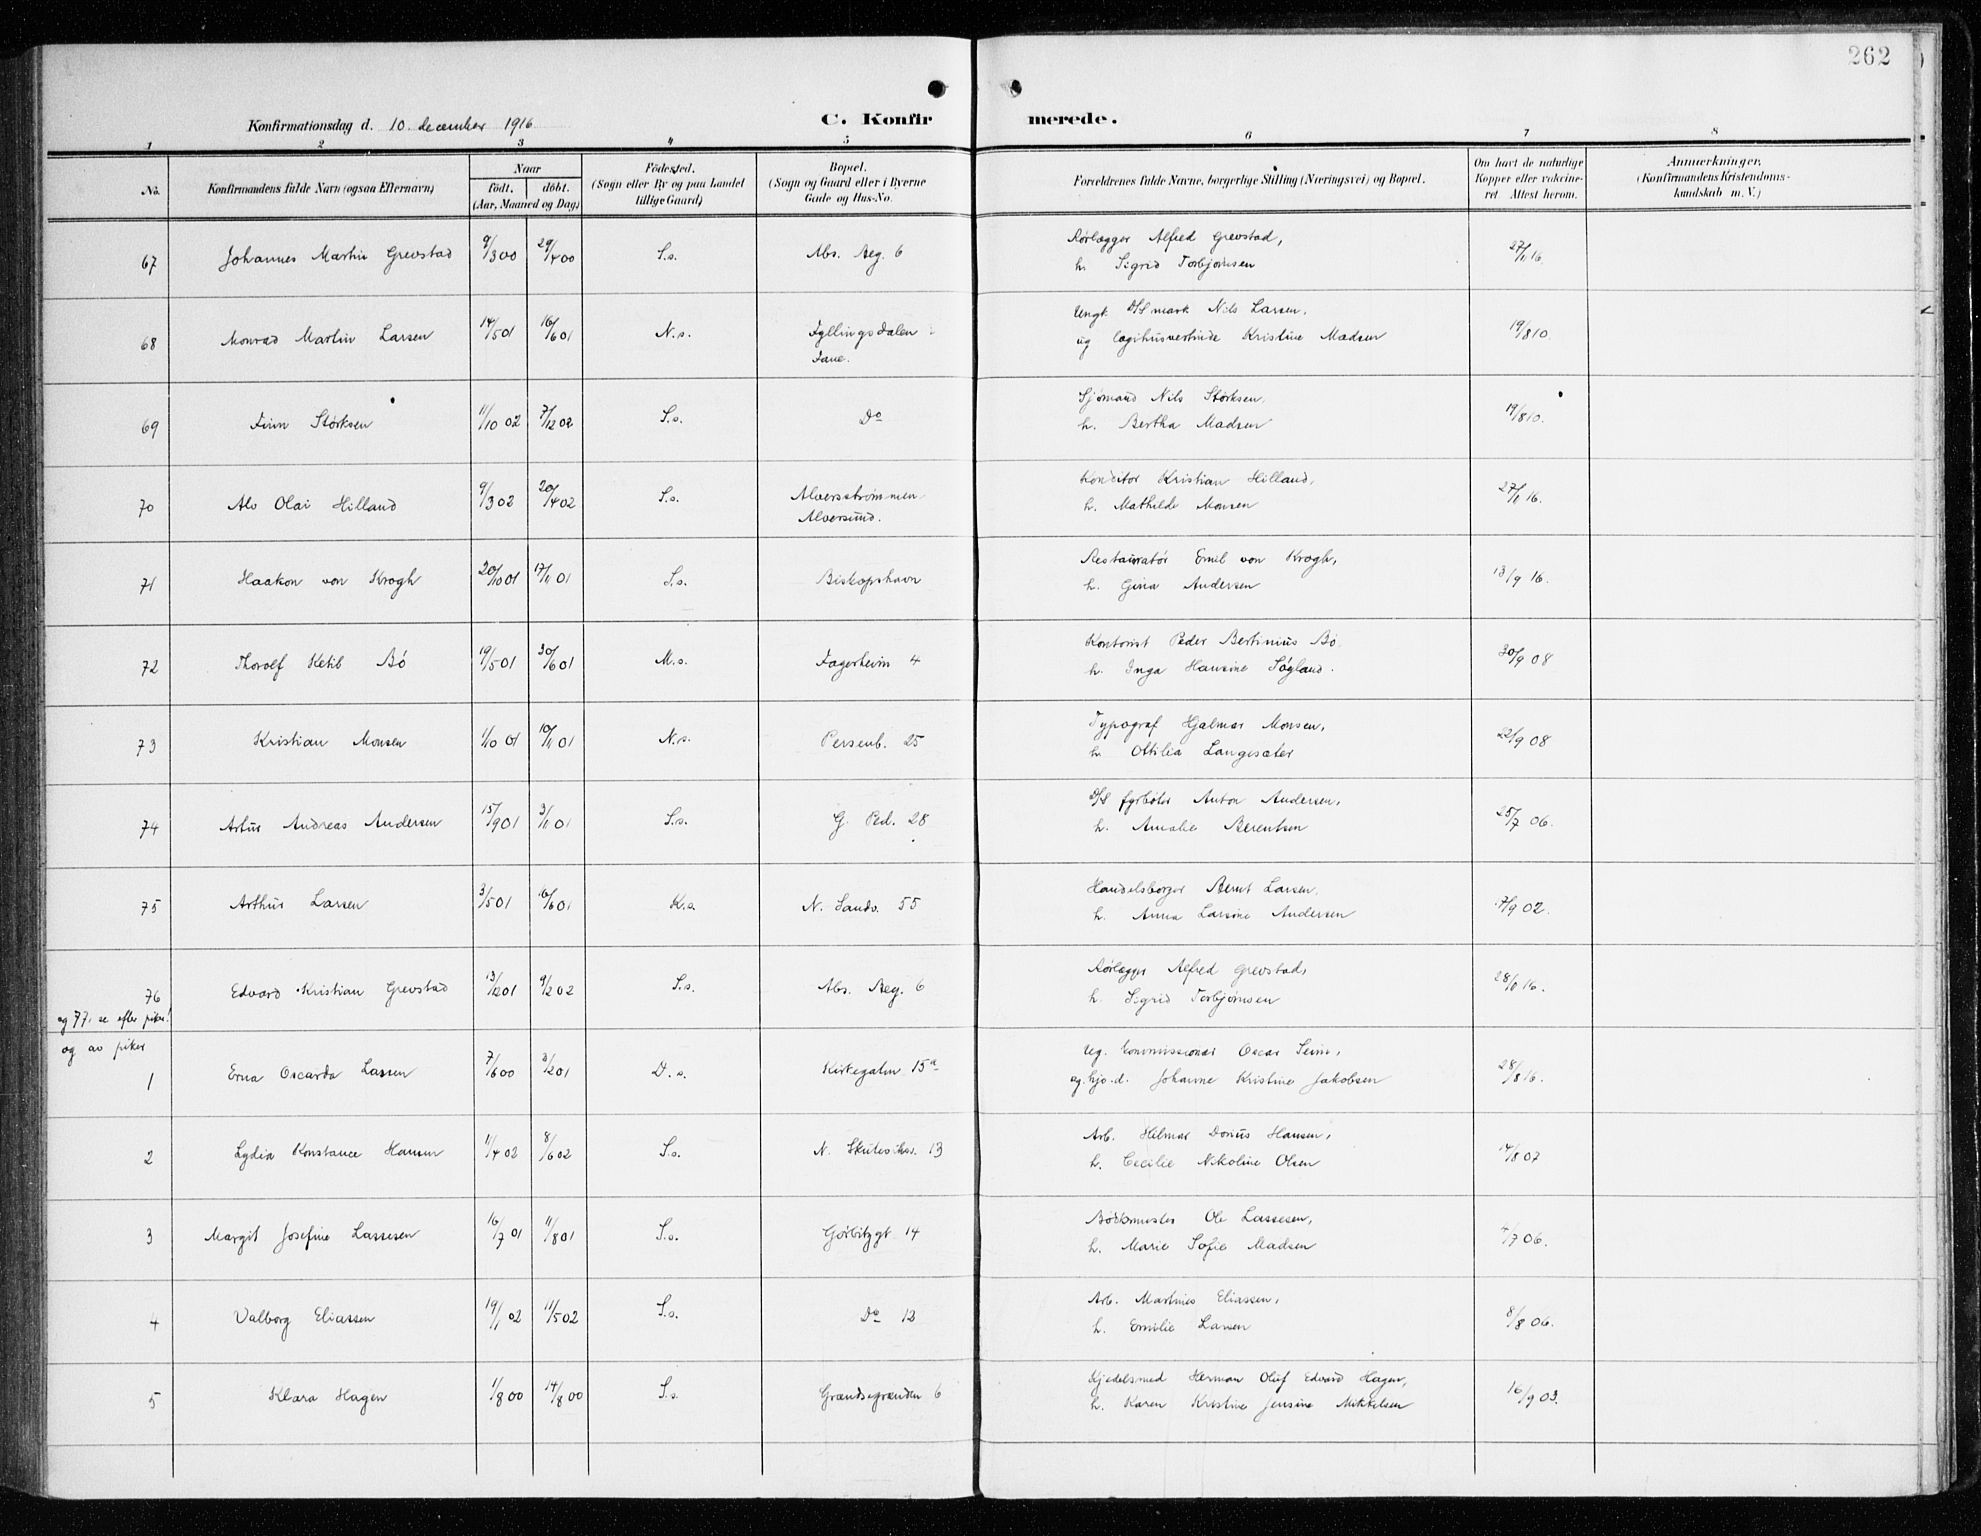 262
Konfirmationsdag d. 10. december 1916
C. Konfirmerede.
1 2 3 4 5 6 7 8
No. Konfirmandens fulde Navn (ogsaa Efternavn)
Naar
født. døbt.
(Aar, Maaned og Dag)
Fødested.
(Sogn eller By og paa Landet
tillige Gaard)
Bopæl.
(Sogn og Gaard eller i Byerne
Gade og Hus-No.
Forældrenes fulde Navne, borgerlige Stilling (Næringsvei) og Bopæl.
Om havt de naturlige
Kopper eller vakcine-
ret. Attest herom.
Anmærkninger.
(Konfirmandens Kristendoms-
kundskab m. V.)
67 Johannes Martin Grevstad 9/3 00 29/4 00 S.s. Abs. Aeg. 6 Rørlægger Alfred Grevstad, 27/11 16.
h. Sigrid Torbjørnsen
68 Monrad Martin Larsen 14/5 01 16/6 01 N.s. Fyllingsdalen Ungk. D/S mark Nils Larsen, 19/8 10.
Fane. og Kristine Madsen
69 Finn Størksen 11/10 02 7/12 02 S.s. Do Sjømand Nils Størksen, 19/8 10.
h. Bertha Madsen
70 Alv Olai Hilland 9/3 02 20/4 02 S.s. Alversstrømmen Konditor Kristian Hilland, 27/11 16.
Alversund. h. Mathilde Monsen
71 Haakon von Krogh 20/10 01 17/11 01 S.s. Biskopshavn Restauratør Emil von Krogh, 13/9 16.
h. Gina Andersen
72 Thorolf Ketil Bö 19/5 01 30/6 01 M.s. Fagerheim 4 Kontorist Peder Bertinius Bö 30/9 08
h. Inga Hansine Søgland.
73 Kristian Monsen 1/10 01 10/11 01 N.s. Persenb. 25 Typograf Hjalmar Monsen, 22/9 08
h. Ottilia Langesæter
74 Artur Andreas Andersen 15/9 01 3/11 01 S.s. G. Ped. 28 D/S fyrbøter Anton Andersen, 25/7 06.
h. Amalie Berentsen
75 Arthur Larsen 3/5 01 16/6 01 K.s. N. Sandv. 55 Handelsborger Bernt Larsen, 7/9 02.
h. Anna Larsine Andersen
76 Edvard Kristian Grevstad 13/12 01 9/2 02 S.s. Abs. Aeg. 6 Rørlægger Alfred Grevstad, 28/11 16.
og 77. se efter piker! h. Sigrid Torbjørnsen
og av piker
1 Erna Oscarda Lassen 7/6 00 3/2 01 D.s. Kirkegaten 15a Ug. Kommissionær Oscar Seim, 28/8 16.
og hjv. d. Johanne Kristine Jakobsen
2 Lydia Konstance Hansen 11/4 02 8/6 02 S.s. N. Skutesviksv. 13 Arb. Hilmar Dorius Hansen, 14/8 07
h. Cecilie Nikoline Olsen
3 Margit Josefine Lassesen 16/7 01 11/8 01 S.s. Gørbitzgt 14 Bødkmester Ole Lassesen, 4/7 06.
h. Marie Sofie Madsen
4 Valborg Eliassen 19/1 02 11/5 02 S.s. Do 12 Arb. Martines Eliassen, 8/8 06.
h. Emilie Larsen
5 Klara Hagen 1/8 00 14/8 00 S.s. Grændsegrænden 6 Kjedelsmed Herman Oluf Edvard Hagen, 16/9 03.
h. Karen Kristine Jensine Mikkelsen